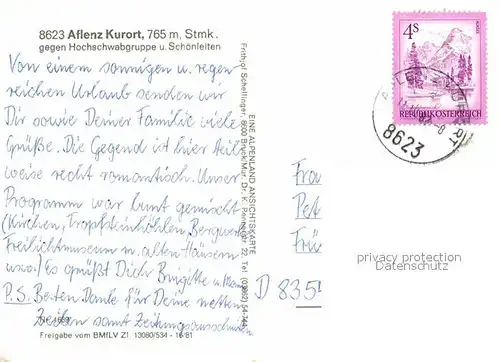 8623 Aflenz Kurort, 765 m, Stmk.
gegen Hochschwabgruppe u. Schönleiten
Von einem sonnigen u. regen-
reichen Urlaub senden wir
Dir sowie Deiner Familie viele
Grüße. Die Gegend ist hier teil-
weise recht romantisch. Unser
Programm war bunt gemischt
(Kirchen, Tropfsteinhöhlen, Bergwerk
Freilichtmuseum m. alten Häusern
usw.) Es grüßt Dich Brigitte u.
P.S. Besten Dank für Deine netten
Zeilen samt Zeitungsausschnitten
Freigabe vom BMfLV Zl. 13080/534 - 1.6/81
EINE ALPENLAND ANSICHTSKARTE
Frithjof Schelfinger, 8600 Bruck/Mur, Dr. K. 22, Tel. (03862)
4s
REPUBLIK ÖSTERREICH
8623
Frau
Pet
D 835
privacy protection
Datenschutz